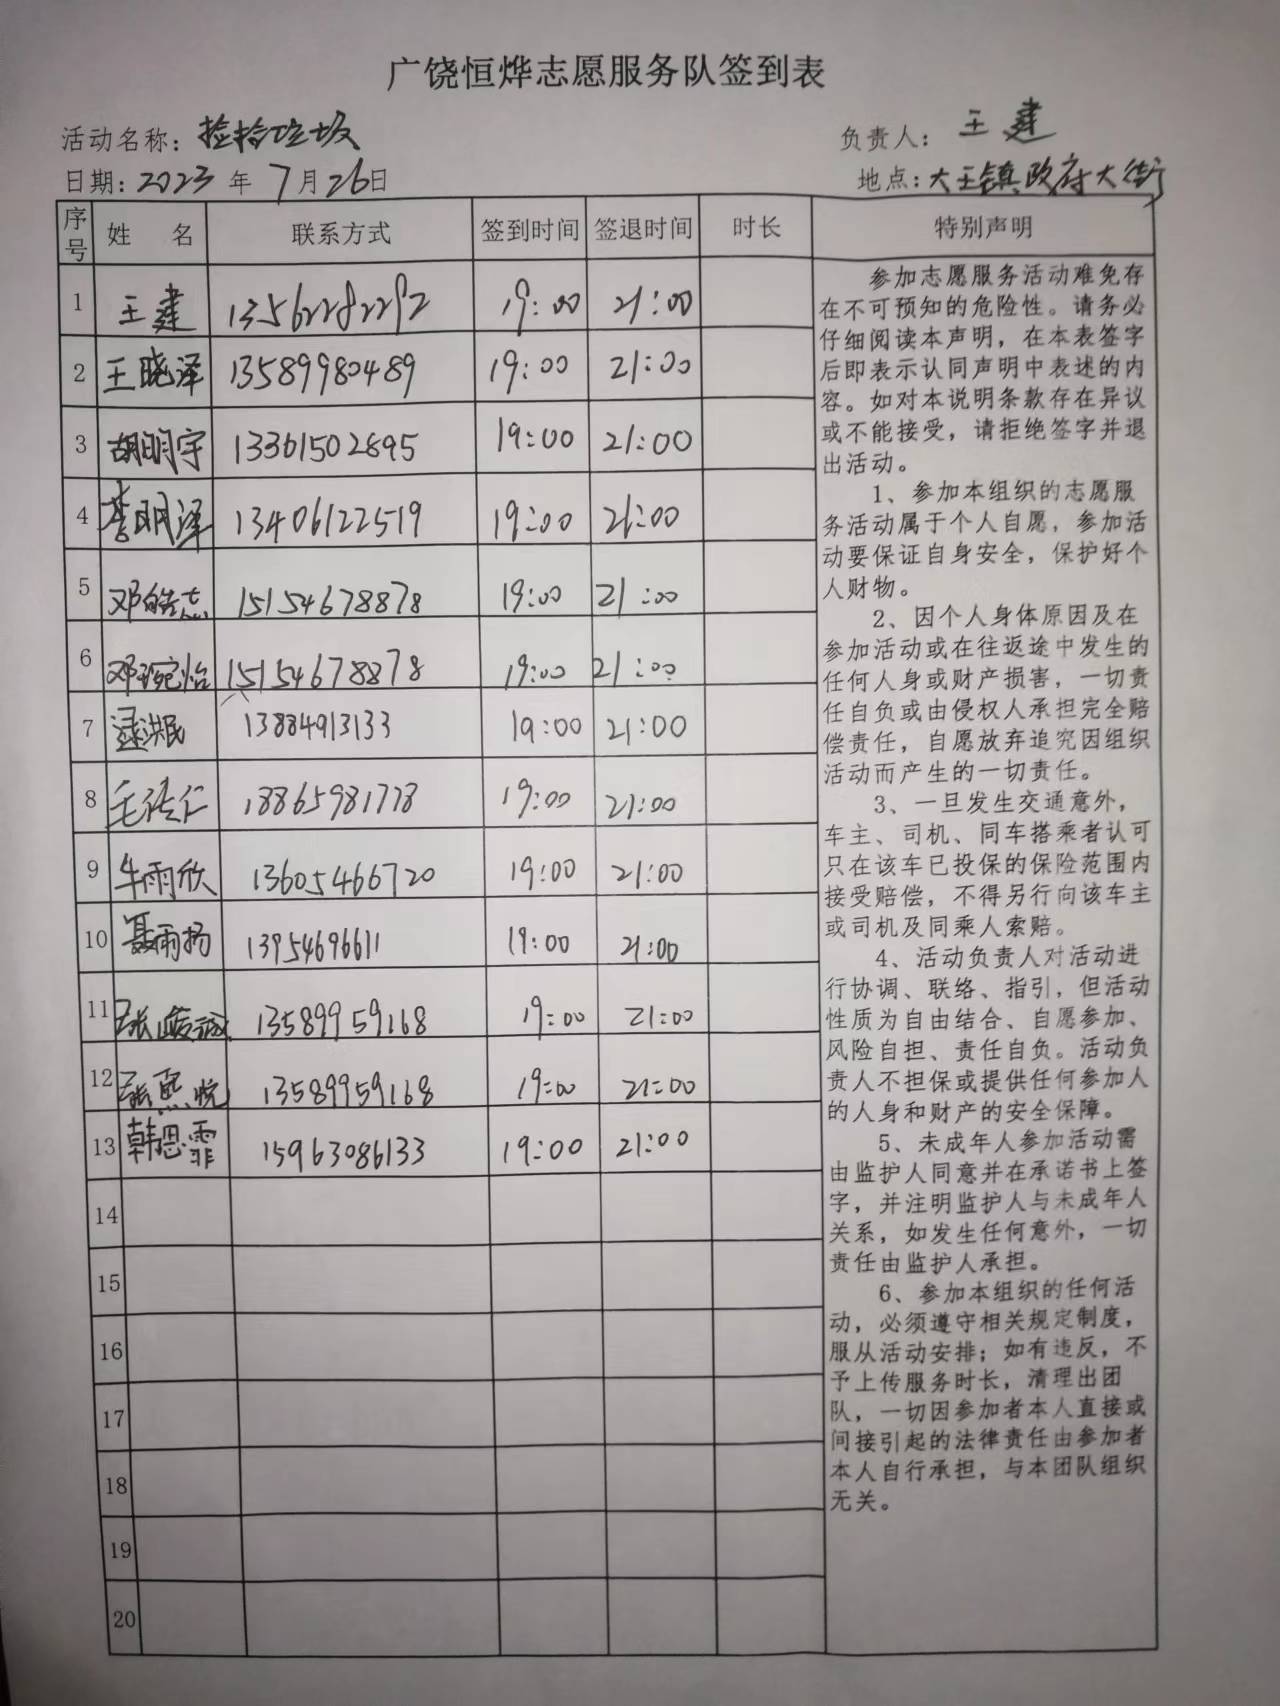 广饶恒烨志愿服务队签到表
活动名称：捡拾垃圾 负责人：王建
日期：2023年7月26日 地点：大王镇政府大街
序号 姓 名 联系方式 签到时间 签退时间 时长 特别声明
1 王建 13562282292 19:00 21:00
2 王晓泽 13589980489 19:00 21:00
3 胡明宇 13361502895 19:00 21:00
4 李明泽 13406122519 19:00 21:00
5 邓皓志 15154678878 19:00 21:00
6 邓琬怡 15154678878 19:00 21:00
7 13884913133 19:00 21:00
8 毛 仁 18865981778 19:00 21:00
9 牛雨欣 13605466720 19:00 21:00
10 聂雨扬 13954696611 19:00 21:00
11 张峻诚 13589959168 19:00 21:00
12 张熙悦 13589959168 19:00 21:00
13 韩思霏 15963086133 19:00 21:00
14
15
16
17
18
19
20
参加志愿服务活动难免存
在不可预知的危险性。请务必
仔细阅读本声明，在本表签字
后即表示认同声明中表述的内
容。如对本说明条款存在异议
或不能接受，请拒绝签字并退
出活动。
1、参加本组织的志愿服
务活动属于个人自愿，参加活
动要保证自身安全，保护好个
人财物。
2、因个人身体原因及在
参加活动或在往返途中发生的
任何人身或财产损害，一切责
任自负或由侵权人承担完全赔
偿责任，自愿放弃追究因组织
活动而产生的一切责任。
3、一旦发生交通意外，
车主、司机、同车搭乘者认可
只在该车已投保的保险范围内
接受赔偿，不得另行向该车主
或司机及同乘人索赔。
4、活动负责人对活动进
行协调、联络、指引，但活动
性质为自由结合、自愿参加、
风险自担、责任自负。活动负
责人不担保或提供任何参加人
的人身和财产的安全保障。
5、未成年人参加活动需
由监护人同意并在承诺书上签
字，并注明监护人与未成年人
关系，如发生任何意外，一切
责任由监护人承担。
6、参加本组织的任何活
动，必须遵守相关规定制度，
服从活动安排；如有违反，不
予上传服务时长，清理出团
队，一切因参加者本人直接或
间接引起的法律责任由参加者
本人自行承担，与本团队组织
无关。